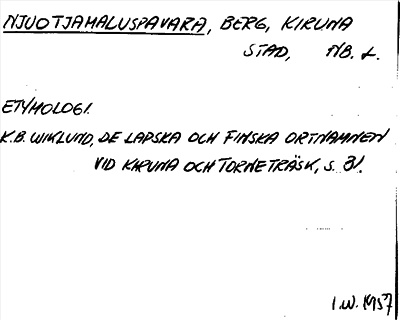 NJUOTJAMALUSPAVARA, BERG, KIRUNA
STAD, NB. L.
ETYMOLOGI.
K.B. WIKLUND, DE LAPSKA OCH FINSKA ORTNAMNEN
VID KIRUNA OCH TORNETRÄSK, S. 31.
I.W. 1957